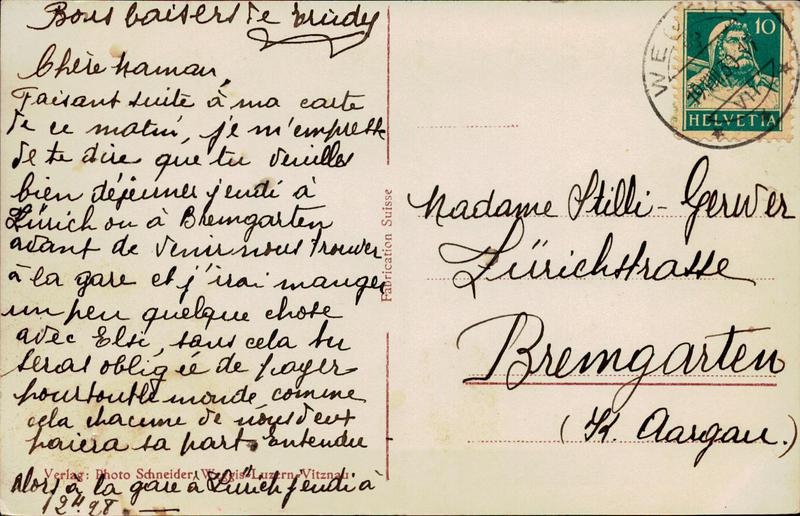 Bons baisers de Trudy
Chère Maman,
Faisant suite à ma carte
de ce matin, je m'empresse
de te dire que tu veuilles
bien déjeuner jeudi à
Zürich ou à Bremgarten
avant de venir nous trouver
à la gare et j'irai manger
un peu quelque chose
avec Elsi, sans cela tu
seras obligée de payer
pour tout le monde comme
cela chacune de nous deux
paiera sa part entendu
alors à la gare à Zürich jeudi à
12 h 28 —
Verlag: Photo Schneider, Weggis-Luzern-Vitznau
Fabrication Suisse
WEGGIS
10
HELVETIA
Madame Stilli-Gerwer
Zürichstrasse
Bremgarten
(Kt. Aargau.)